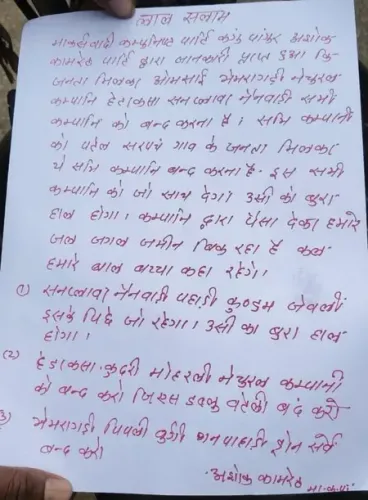 लाल सलाम
माओवादी कम्युनिष्ट पार्टि कांड पांचुर अशोक
कामरेड पार्टि द्वारा जानकारी प्राप्त हुआ कि
जनता मिलकर ओमसाई येमरागडी नेचुरल
कम्पानि हेटाकसा सनप्लावर नैनवाडी सभी
कम्पानि को बन्द करना है। सभि कम्पानी
को पटेल सरपंच गाव के जनता मिलकर
ये सभि कम्पानि बन्द करना है. इस सभी
कम्पानि को जो साथ देगा उसी का बुरा
हाल होगा। कम्पानि द्वारा पैसा देकर हमारे
जल जगल जमीन बिक रहा है कल
हमारे बाल बच्चा कहा रहेगे।
(1) सनप्लावर नैनवाडी पहाडी कुण्डम जेवली
इसके पिछे जो रहेगा। उसी का बुरा हाल
होगा।
(2) हेडाकसा. कुदरी मोहरली नेचुरल कम्पानी
को बन्द करो वटेली बंद करो
3) येमरागडी पिपली बुर्गी पहाडी ड्रोन सर्वे
बन्द करो
अशोक कामरेड
मा.क.पा.